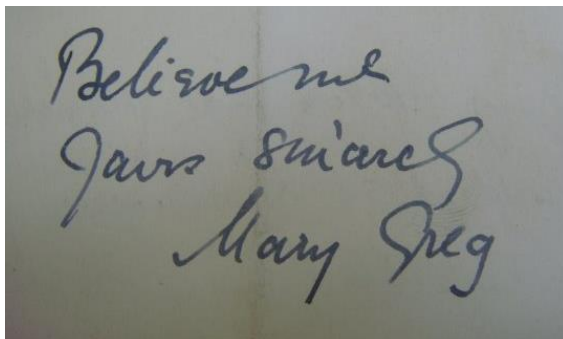 Believe me
Yours sincerely
Mary Greg